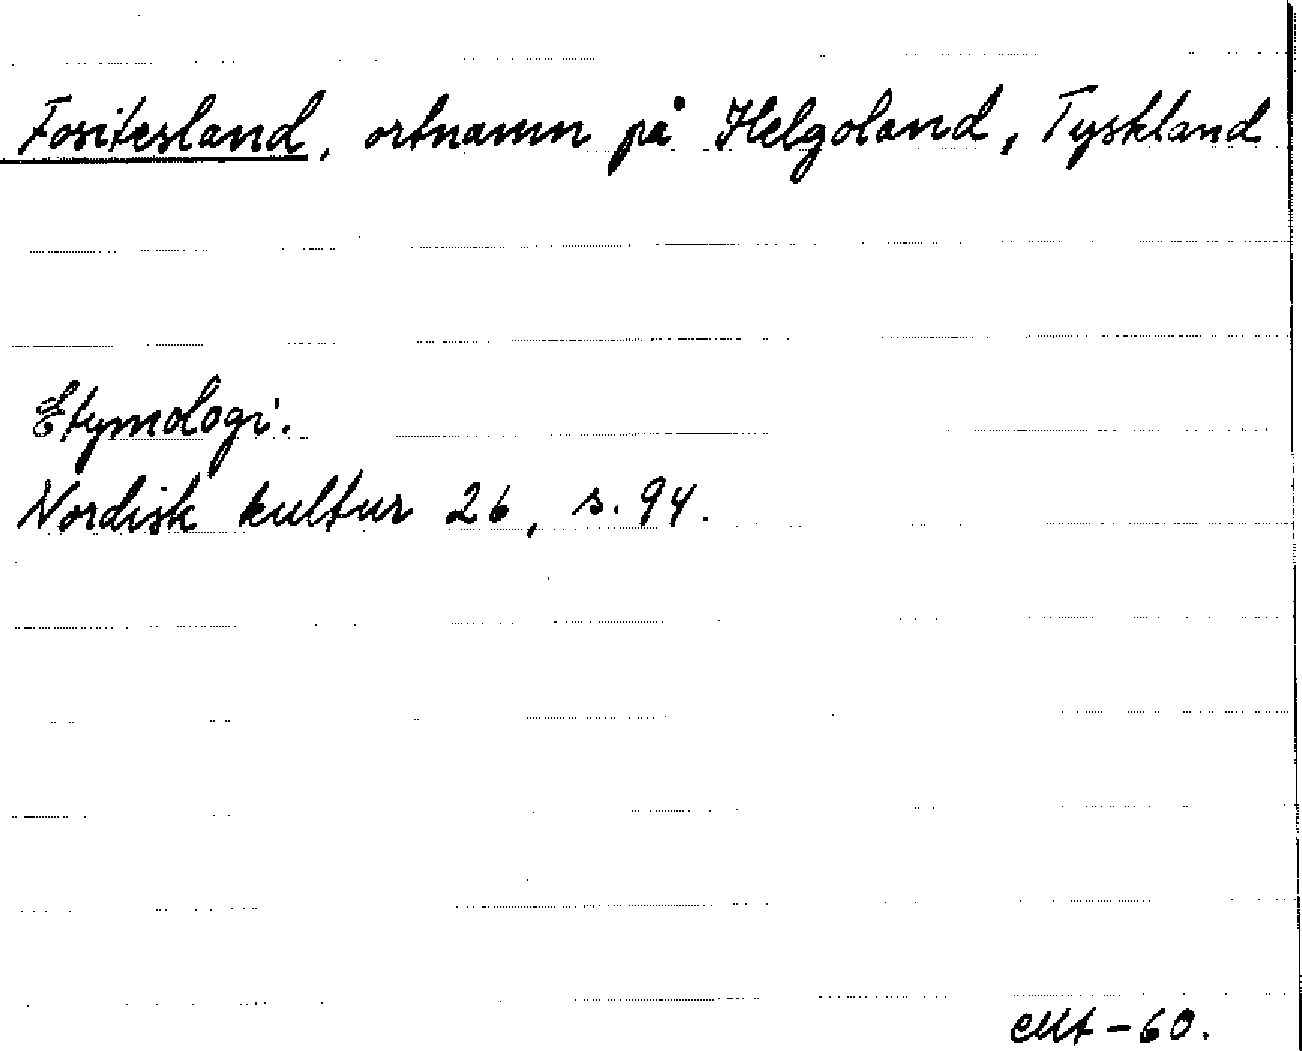 Fositesland, ortnamn på Helgoland, Tyskland
Etymologi.
Nordisk kultur 26, s. 94.
-60.